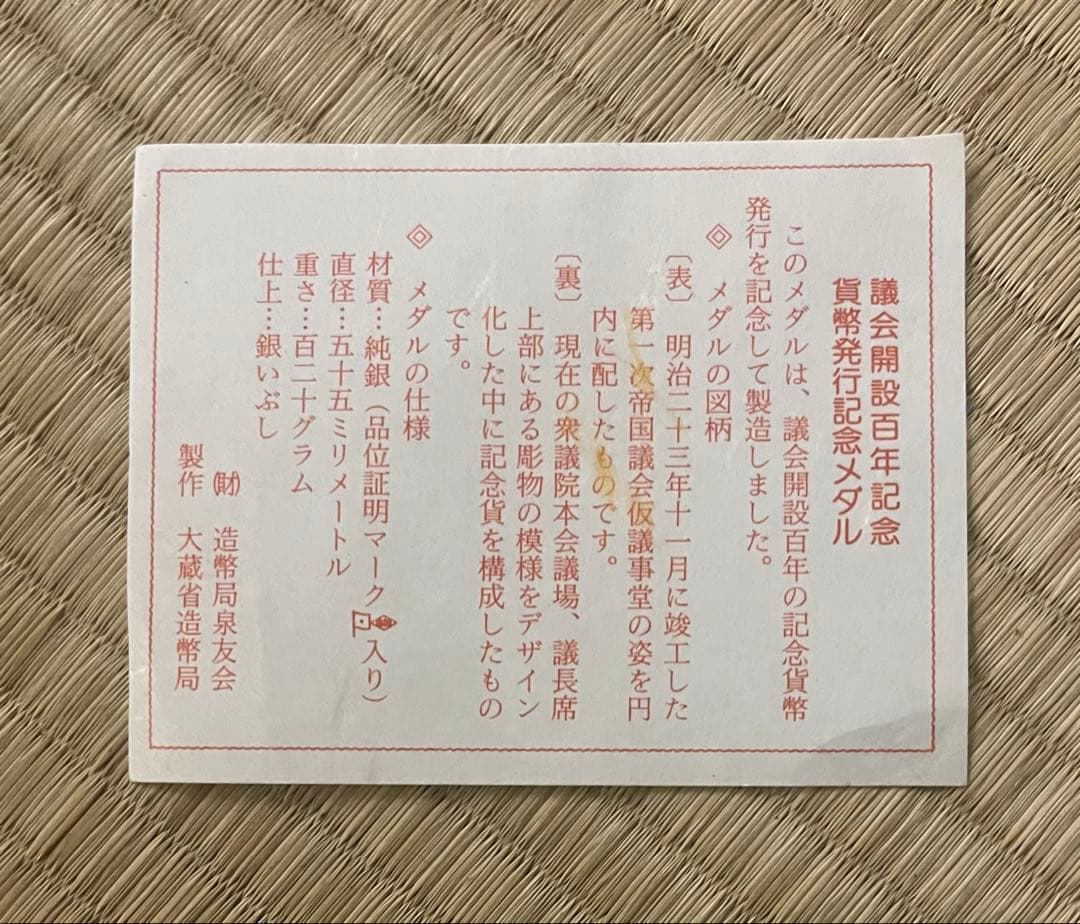 議会開設百年記念
貨幣発行記念メダル
このメダルは、議会開設百年の記念貨幣
発行を記念して製造しました。
◈ メダルの図柄
〔表〕 明治二十三年十一月に竣工した
第一次帝国議会仮議事堂の姿を円
内に配したものです。
〔裏〕 現在の衆議院本会議場、議長席
上部にある彫物の模様をデザイン
化した中に記念貨を構成したもの
です。
◈ メダルの仕様
材質…純銀(品位証明マーク入り)
直径…五十五ミリメートル
重さ…百二十グラム
仕上…銀いぶし
㈶ 造幣局泉友会
製作 大蔵省造幣局